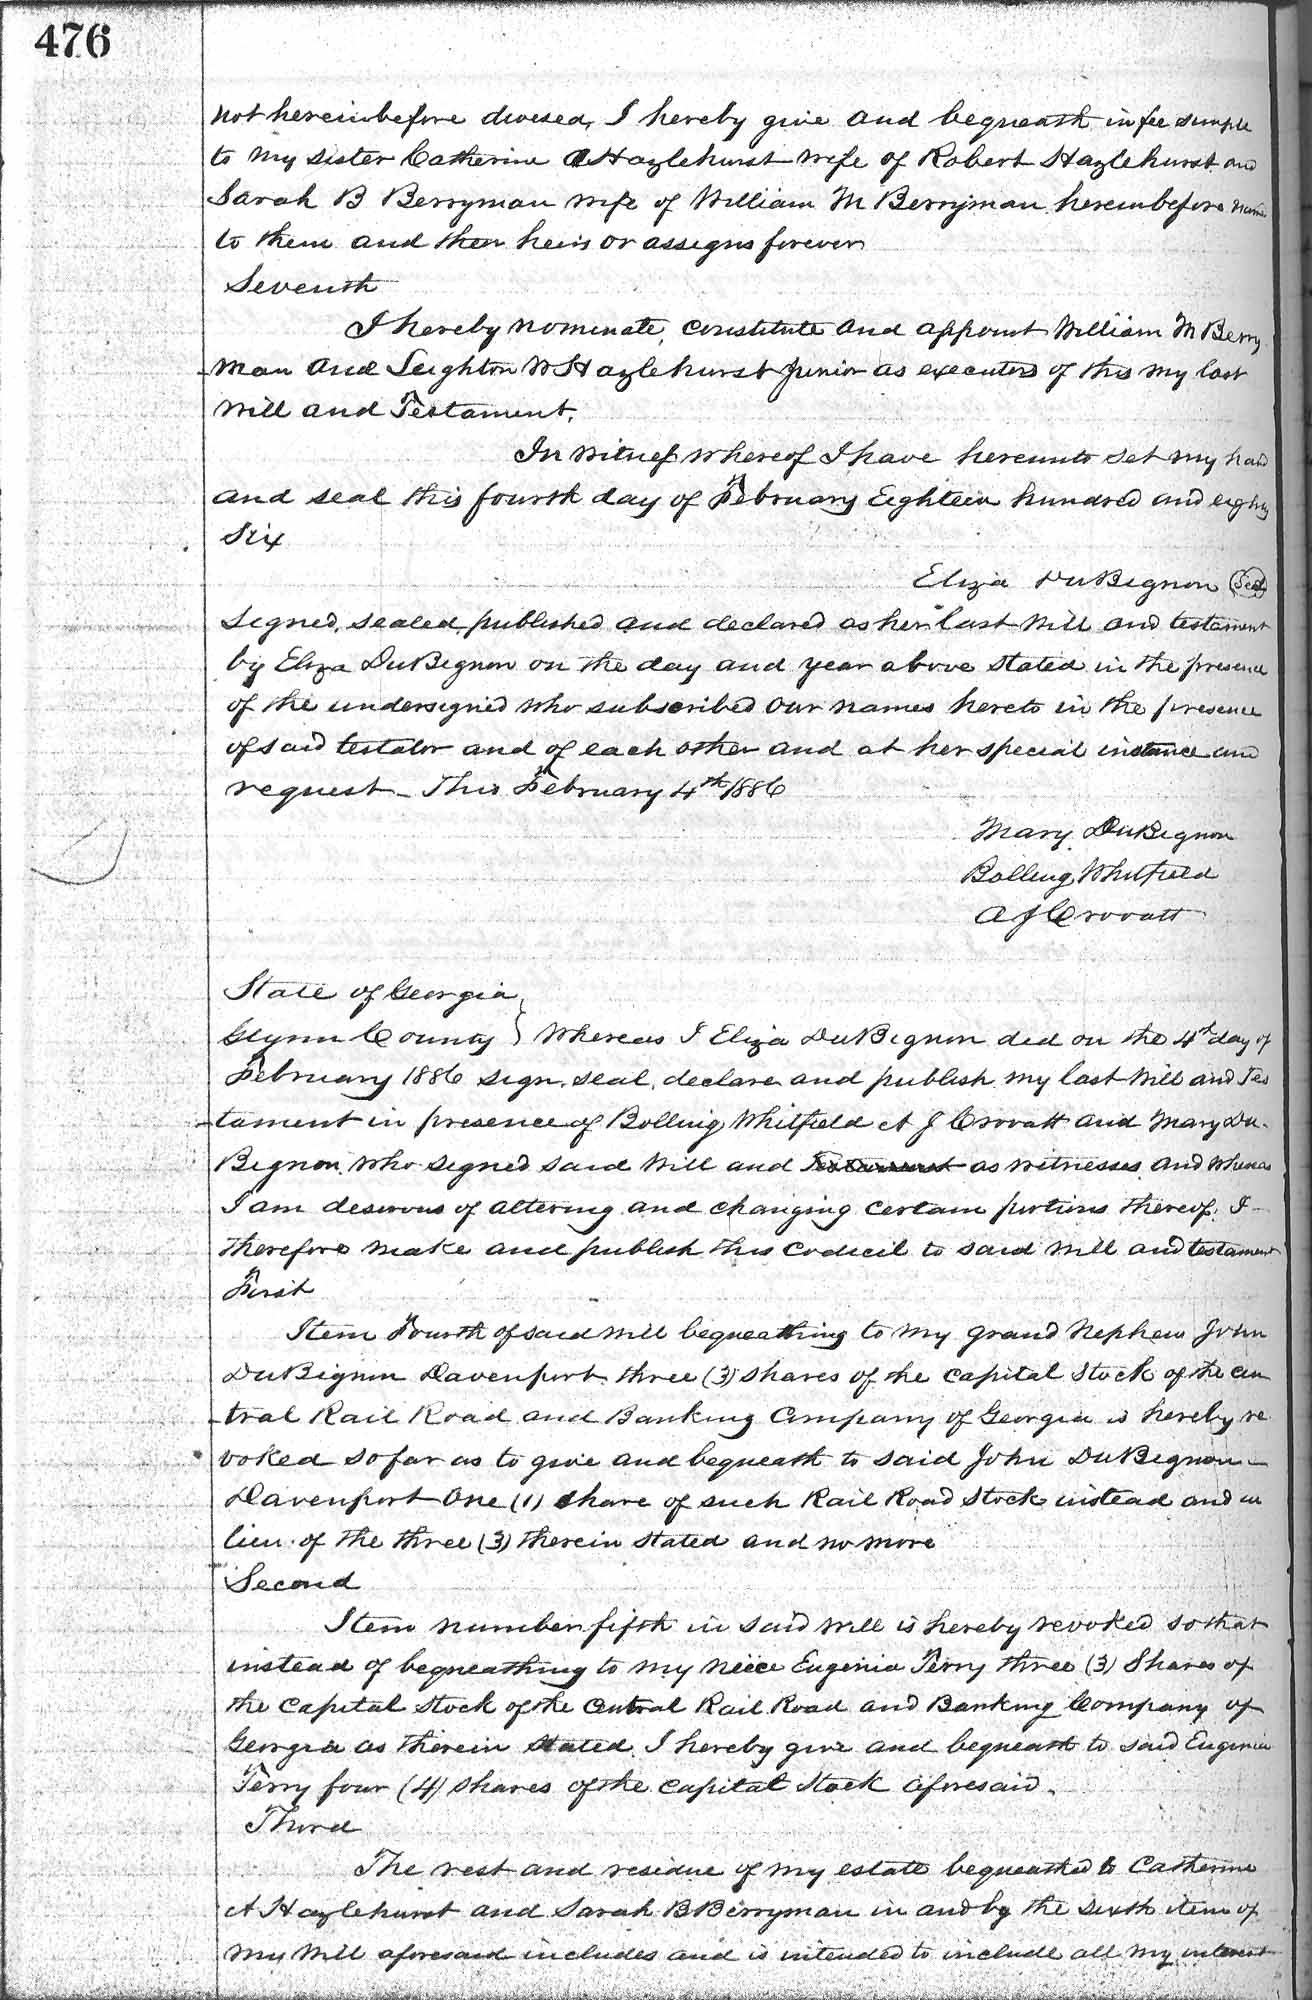 476
not hereinbefore devised, I hereby give and bequeath in fee simple
to my sister Catherine A Hazlehurst wife of Robert Hazlehurst and
Sarah B Berryman wife of William M Berryman hereinbefore
to them and their heirs or assigns forever
Seventh
I hereby nominate, constitute and appoint William M Berry
-man and Leighton W Hazlehurst Junior as executors of this my last
Will and Testament.
In witness whereof I have hereunto set my hand
and seal this fourth day of February Eighteen hundred and eighty
Six
Eliza DuBignon (Seal)
Signed, sealed, published and declared as her last will and testament
by Eliza DuBignon on the day and year above stated in the presence
of the undersigned who subscribed our names hereto in the presence
of said testator and of each other and at her special instance and
request - This February 4th 1886
Mary DuBignon
Bolling Whitfield
A J Crovatt
State of Georgia
Glynn County } Whereas I Eliza DuBignon did on the 4th day of
February 1886 sign, seal, declare and publish my last Will and Tes
-tament in presence of Bolling Whitfield A J Crovatt and Mary Du-
Bignon who signed said Will and Testament as witnesses and whereas
I am desirous of altering and changing certain portions thereof. I
therefore make and publish this Codicil to said Will and testament
First
Item Fourth of said Will bequeathing to my grand Nephew John
DuBignon Davenport three (3) shares of the Capital Stock of the Cen
-tral Rail Road and Banking Company of Georgia is hereby re
voked so far as to give and bequeath to said John DuBignon
Davenport One (1) Share of such Rail Road Stock instead and in
lieu of the three (3) therein stated and no more
Second
Item number fifth in said Will is hereby revoked so that
instead of bequeathing to my neice Eugenia Terry three (3) Shares of
the Capital Stock of the Central Rail Road and Banking Company of
Georgia as therein stated I hereby give and bequeath to said Eugenia
Terry four (4) shares of the Capital Stock aforesaid.
Third
The rest and residue of my estate bequeathed to Catherine
A Hazlehurst and Sarah B Berryman in and by the sixth item of
my Will aforesaid includes and is intended to include all my interest